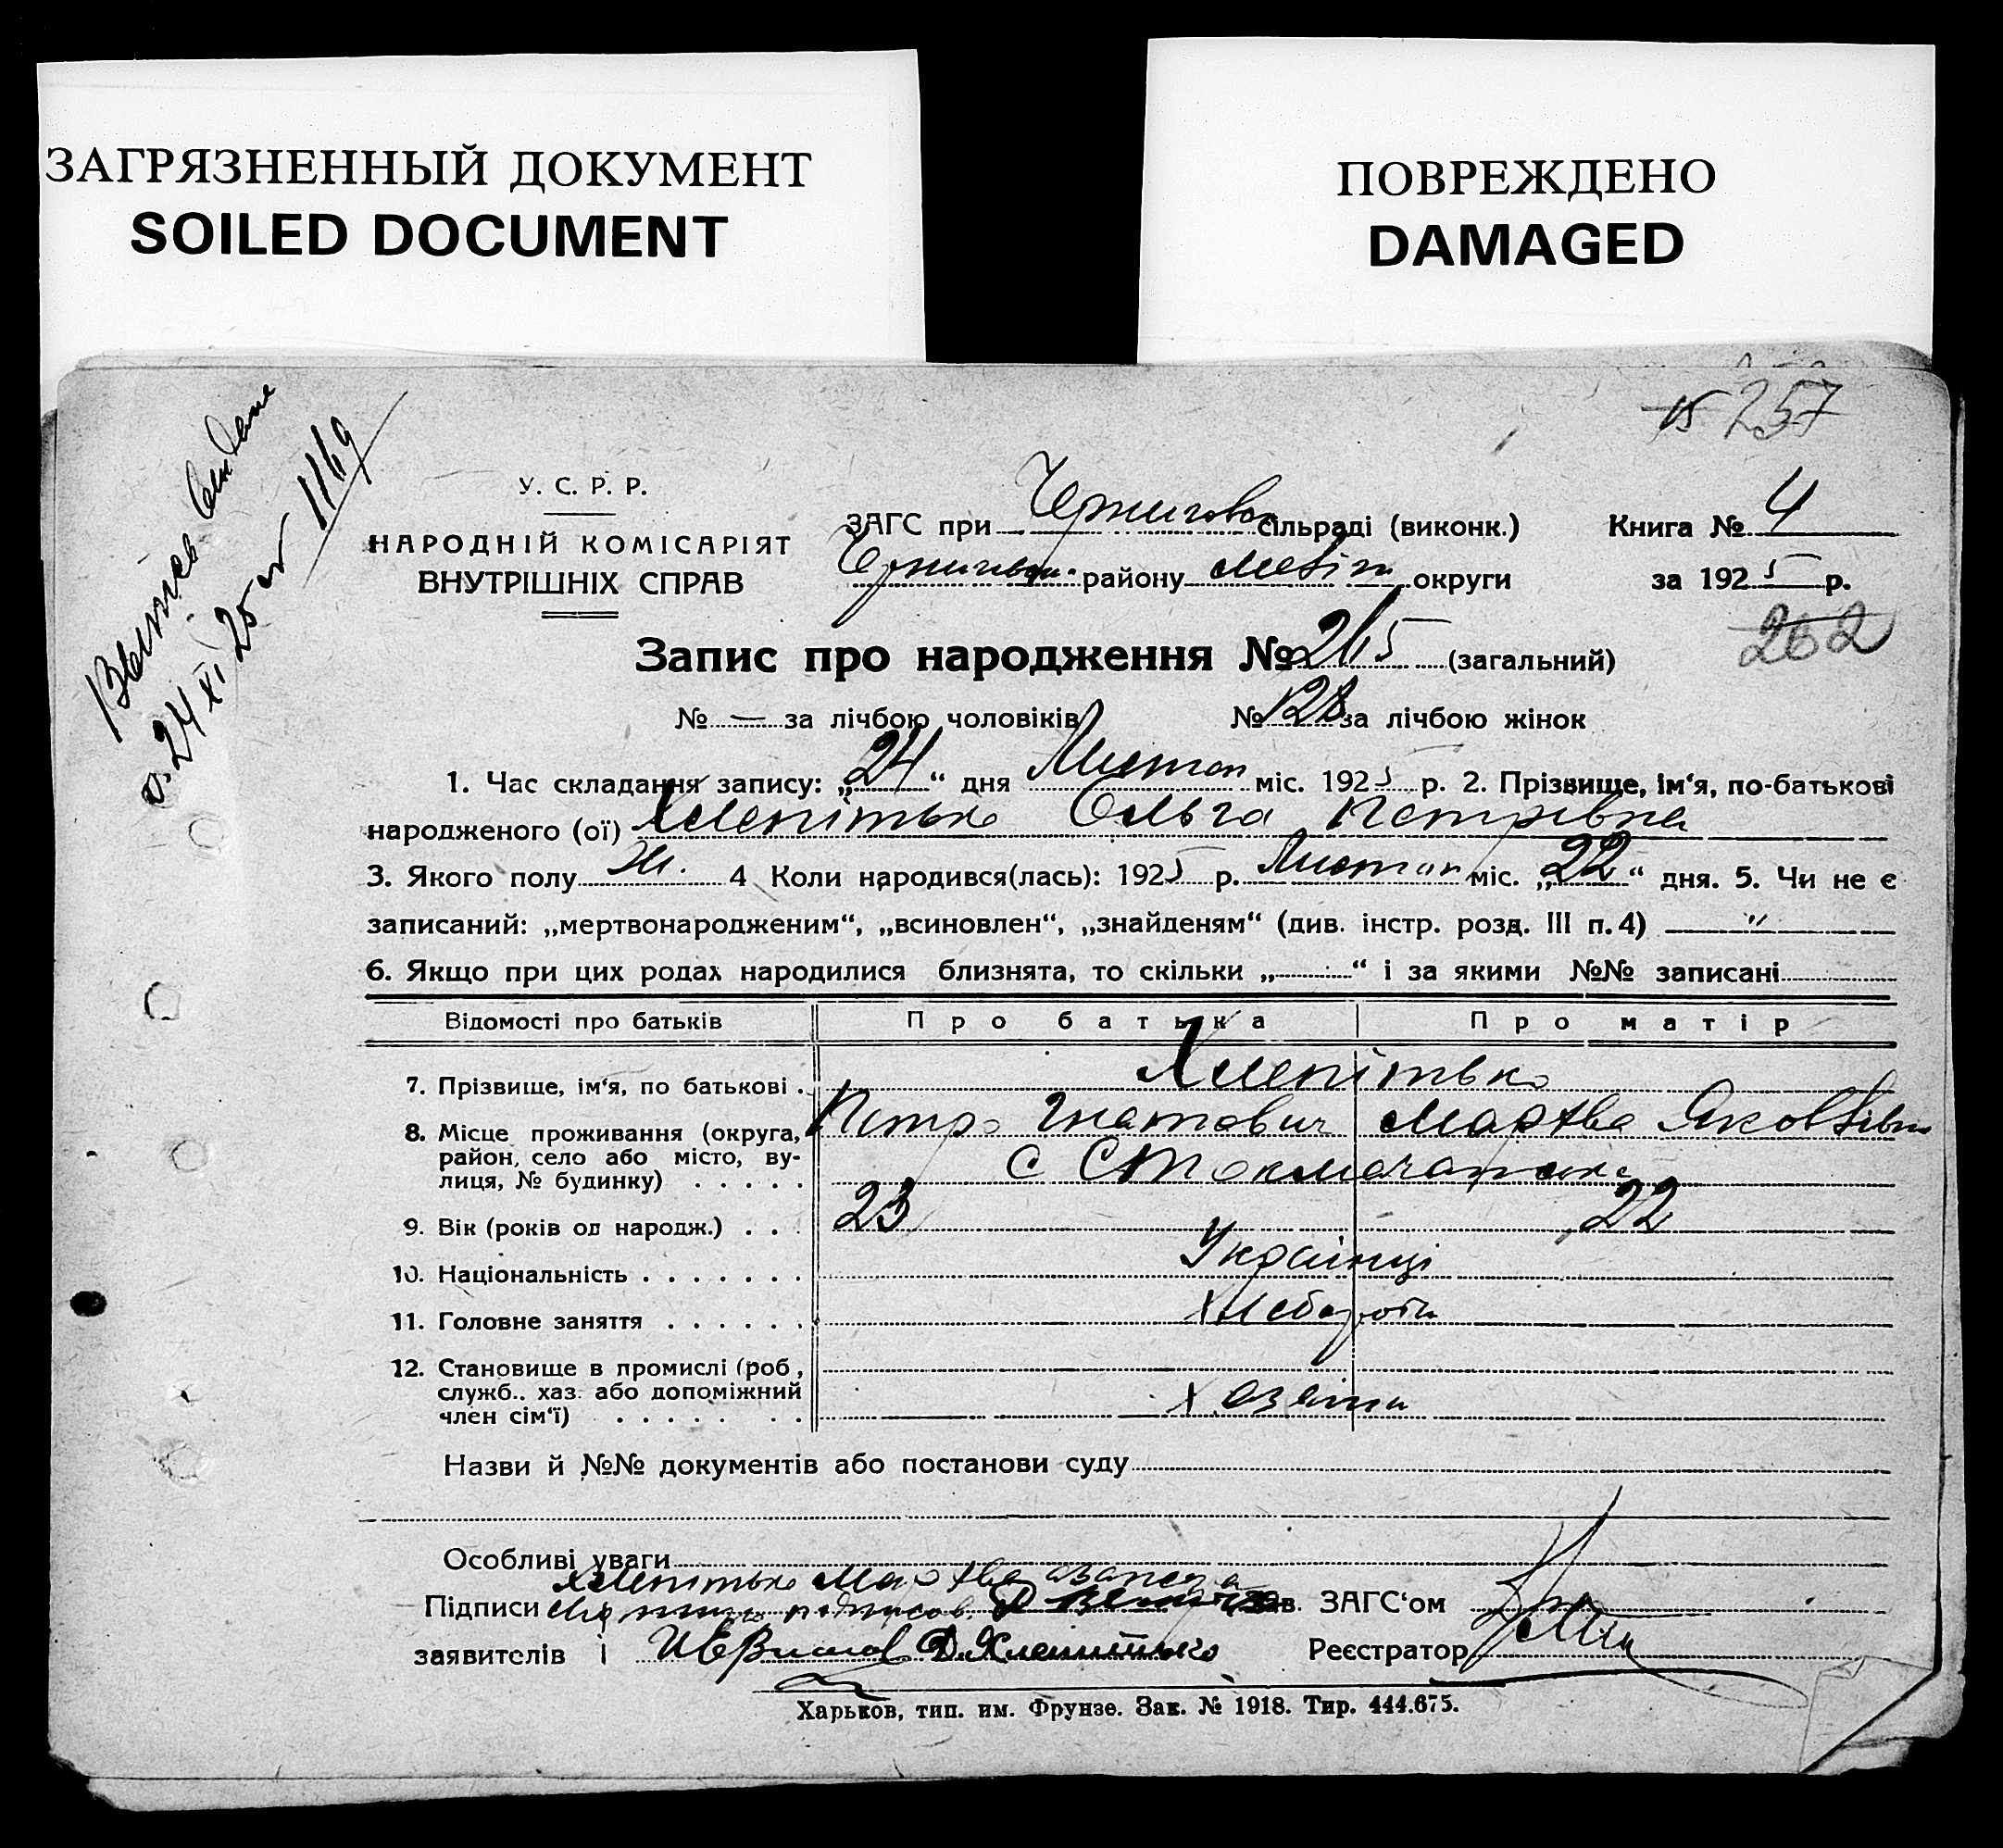 ЗАГРЯЗНЕННЫЙ ДОКУМЕНТ
SOILED DOCUMENT
ПОВРЕЖДЕНО
DAMAGED
15 257
1169
У. С. Р. Р.
НАРОДНІЙ КОМІСАРІЯТ
ВНУТРІШНІХ СПРАВ
ЗАГС при Черниговск сільраді (виконк.) Книга № 4
району Меліт округи за 1925 р.
262
Запис про народження № 265 (загальний)
№ — за лічбою чоловіків № 128 за лічбою жінок
1. Час складання запису: „24“ дня Листоп міс. 1925 р. 2. Прізвище, ім‘я, по-батькові
народженого (ої) Хлепітько Ольга Петрівна
3. Якого полу ж. 4 Коли народився(лась): 1925 р. Листоп міс. „22“ дня. 5. Чи не є
записаний: „мертвонародженим“, „всиновлен“, „знайденям“ (див. інстр. розд. III п. 4) — " —
6. Якщо при цих родах народилися близнята, то скільки „ “ і за якими №№ записані
Відомості про батьків Про батька Про матір
7. Прізвище, ім‘я, по батькові . Хлепітько
Петро Гнатович Марфа Яковлівна
8. Місце проживання (округа,
район, село або місто, ву-
лиця, № будинку) . . . . . с
9. Вік (років од народж.) . . . 23 22
10. Національність . . . . . . . Українці
11. Головне заняття . . . . . . Хлебороби
12. Становище в промислі (роб,
служб.. хаз. або допоміжний
член сім‘ї) . . . . . . . Хазяїни
Назви й №№ документів або постанови суду
Особливі уваги
Хлепітько Марфа
Підписи Зав. ЗАГС‘ом
заявителів і Д. Хлепітько Реєстратор
Харьков, тип. им. Фрунзе. Зак. № 1918. Тир. 444.675.